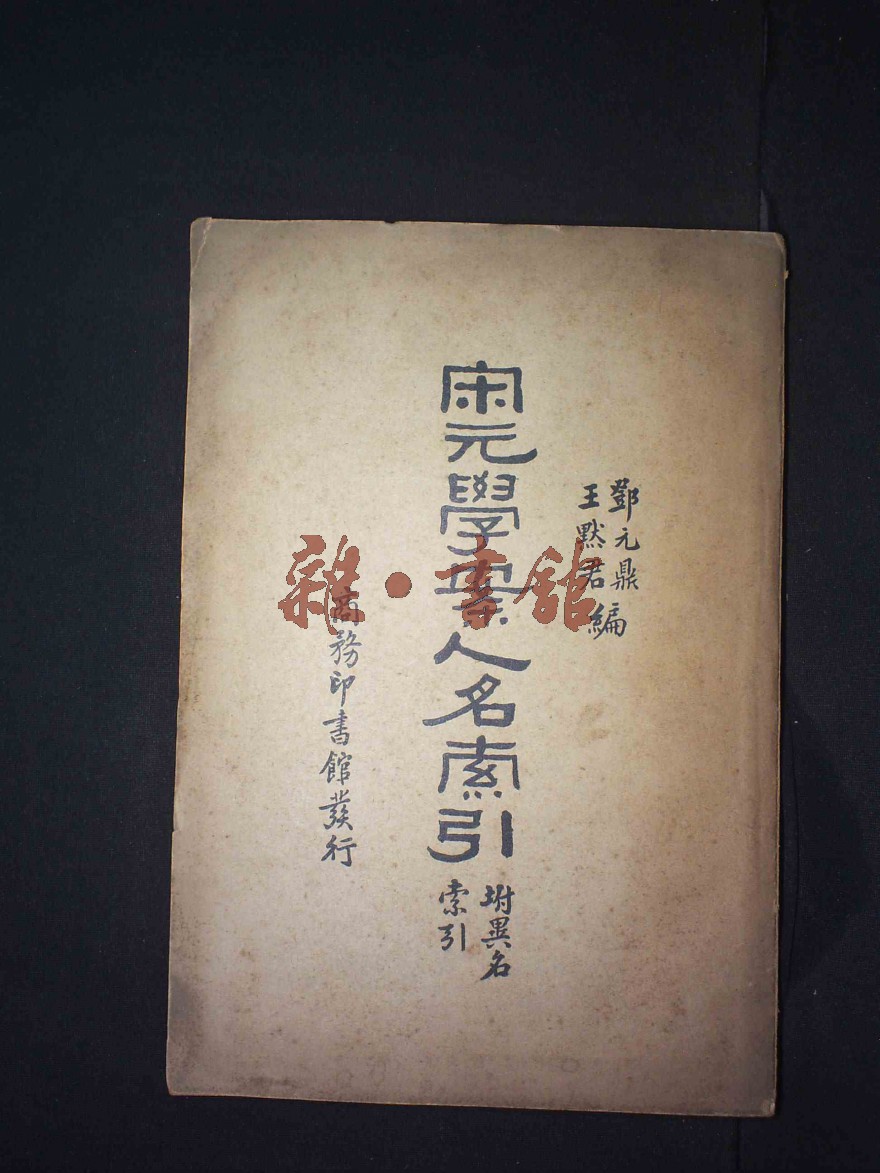 鄧元鼎
王默君編
宋元學案人名索引
坿異名
索引
商務印書館發行
雜·書館